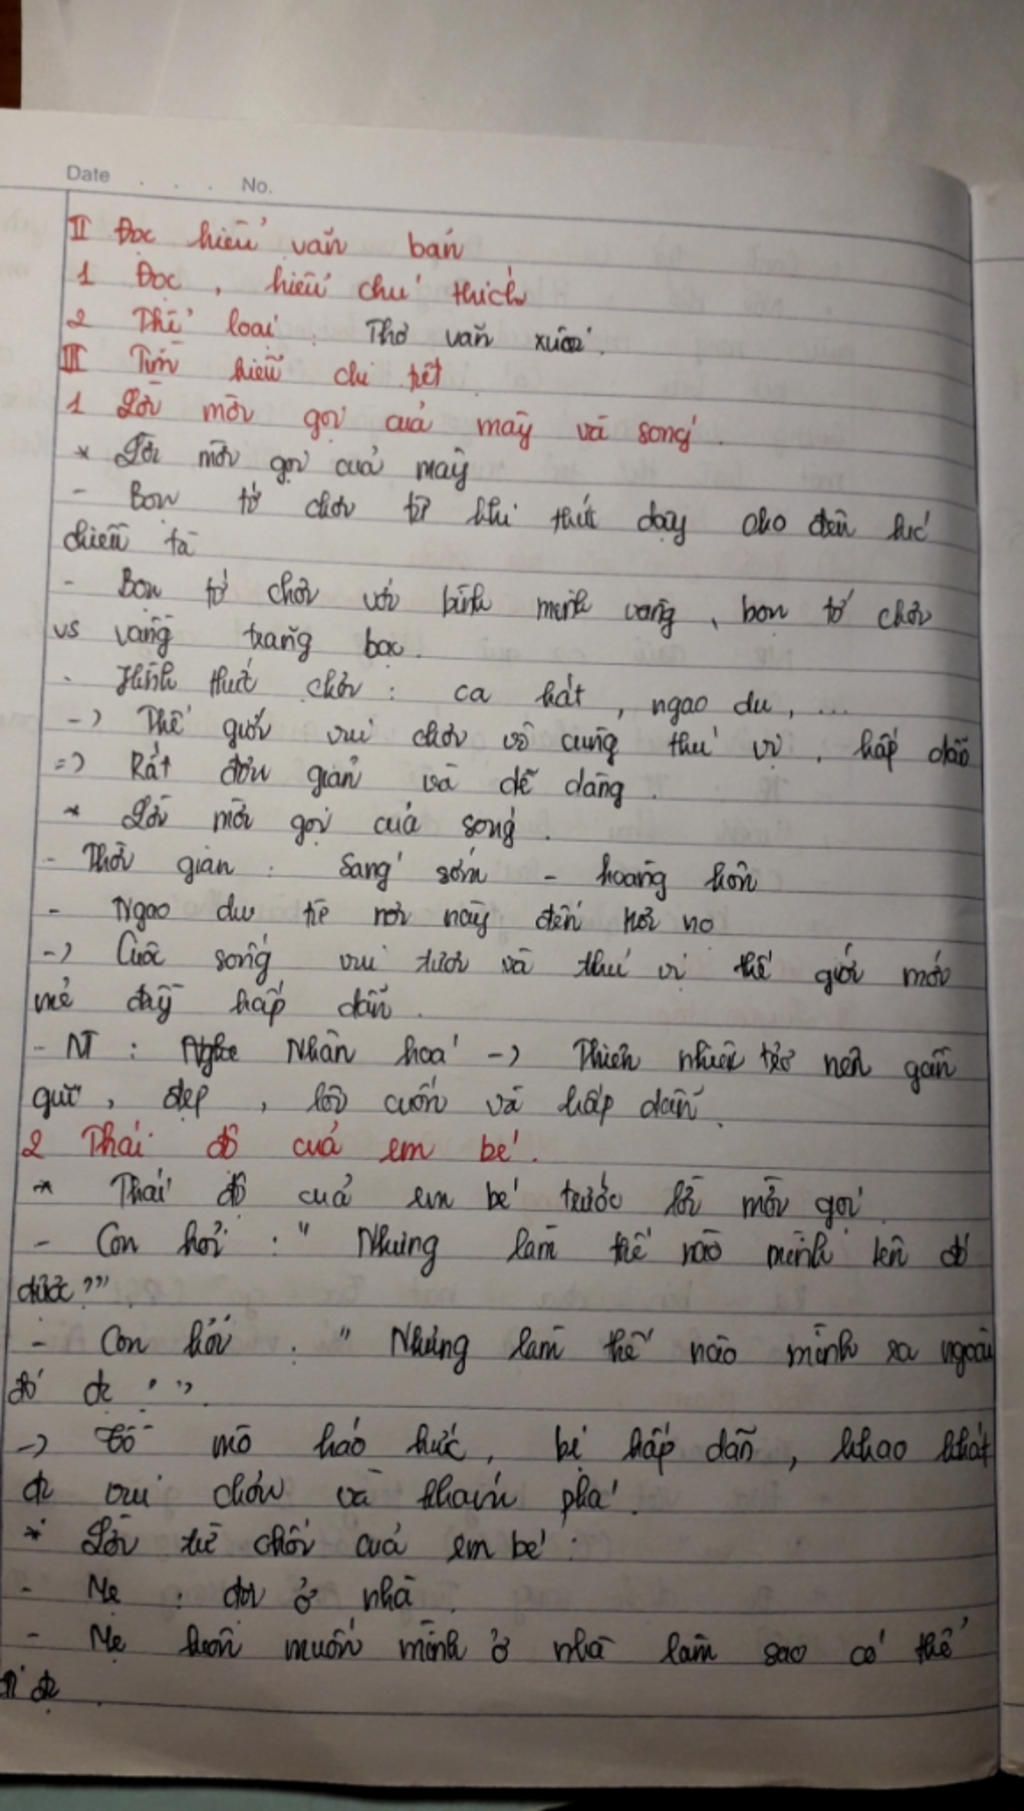 Date . . . No.
II Đọc hiểu văn bản
1 Đọc, hiểu chú thích
2 Thể loại : Thơ văn xuôi.
III Tìm hiểu chi tiết
1 Lời mời gọi của mây và sóng.
* Lời mời gọi của mây
- Bọn tớ chơi từ khi thức dậy cho đến lúc
chiều tà
- Bọn tớ chơi với bình minh vàng, bọn tớ chơi
vs vầng trăng bạc.
- Hình thức chơi : ca hát, ngao du, ...
-> Thế giới vui chơi vô cùng thú vị, hấp dẫn
=> Rất đơn giản và dễ dàng.
* Lời mời gọi của sóng.
- Thời gian : Sáng sớm - hoàng hôn
- Ngao du từ nơi này đến nơi nọ
-> Cuộc sống vui tươi và thú vị thế giới mới
mẻ đầy hấp dẫn.
- NT : Nhân hoá -> Thiên nhiên trở nên gần
gũi, đẹp, lôi cuốn và hấp dẫn.
2 Thái độ của em bé.
* Thái độ của em bé trước lời mời gọi.
- Con hỏi : "Nhưng làm thế nào mình lên đó
được?".
- Con hỏi : "Nhưng làm thế nào mình ra ngoài
đó đc ?".
-> Tò mò háo hức, bị hấp dẫn, khao khát
đc vui chơi và khám phá.
* Lời từ chối của em bé :
- Mẹ : đợi ở nhà.
- Mẹ luôn muốn mình ở nhà làm sao có thể
đi đc.